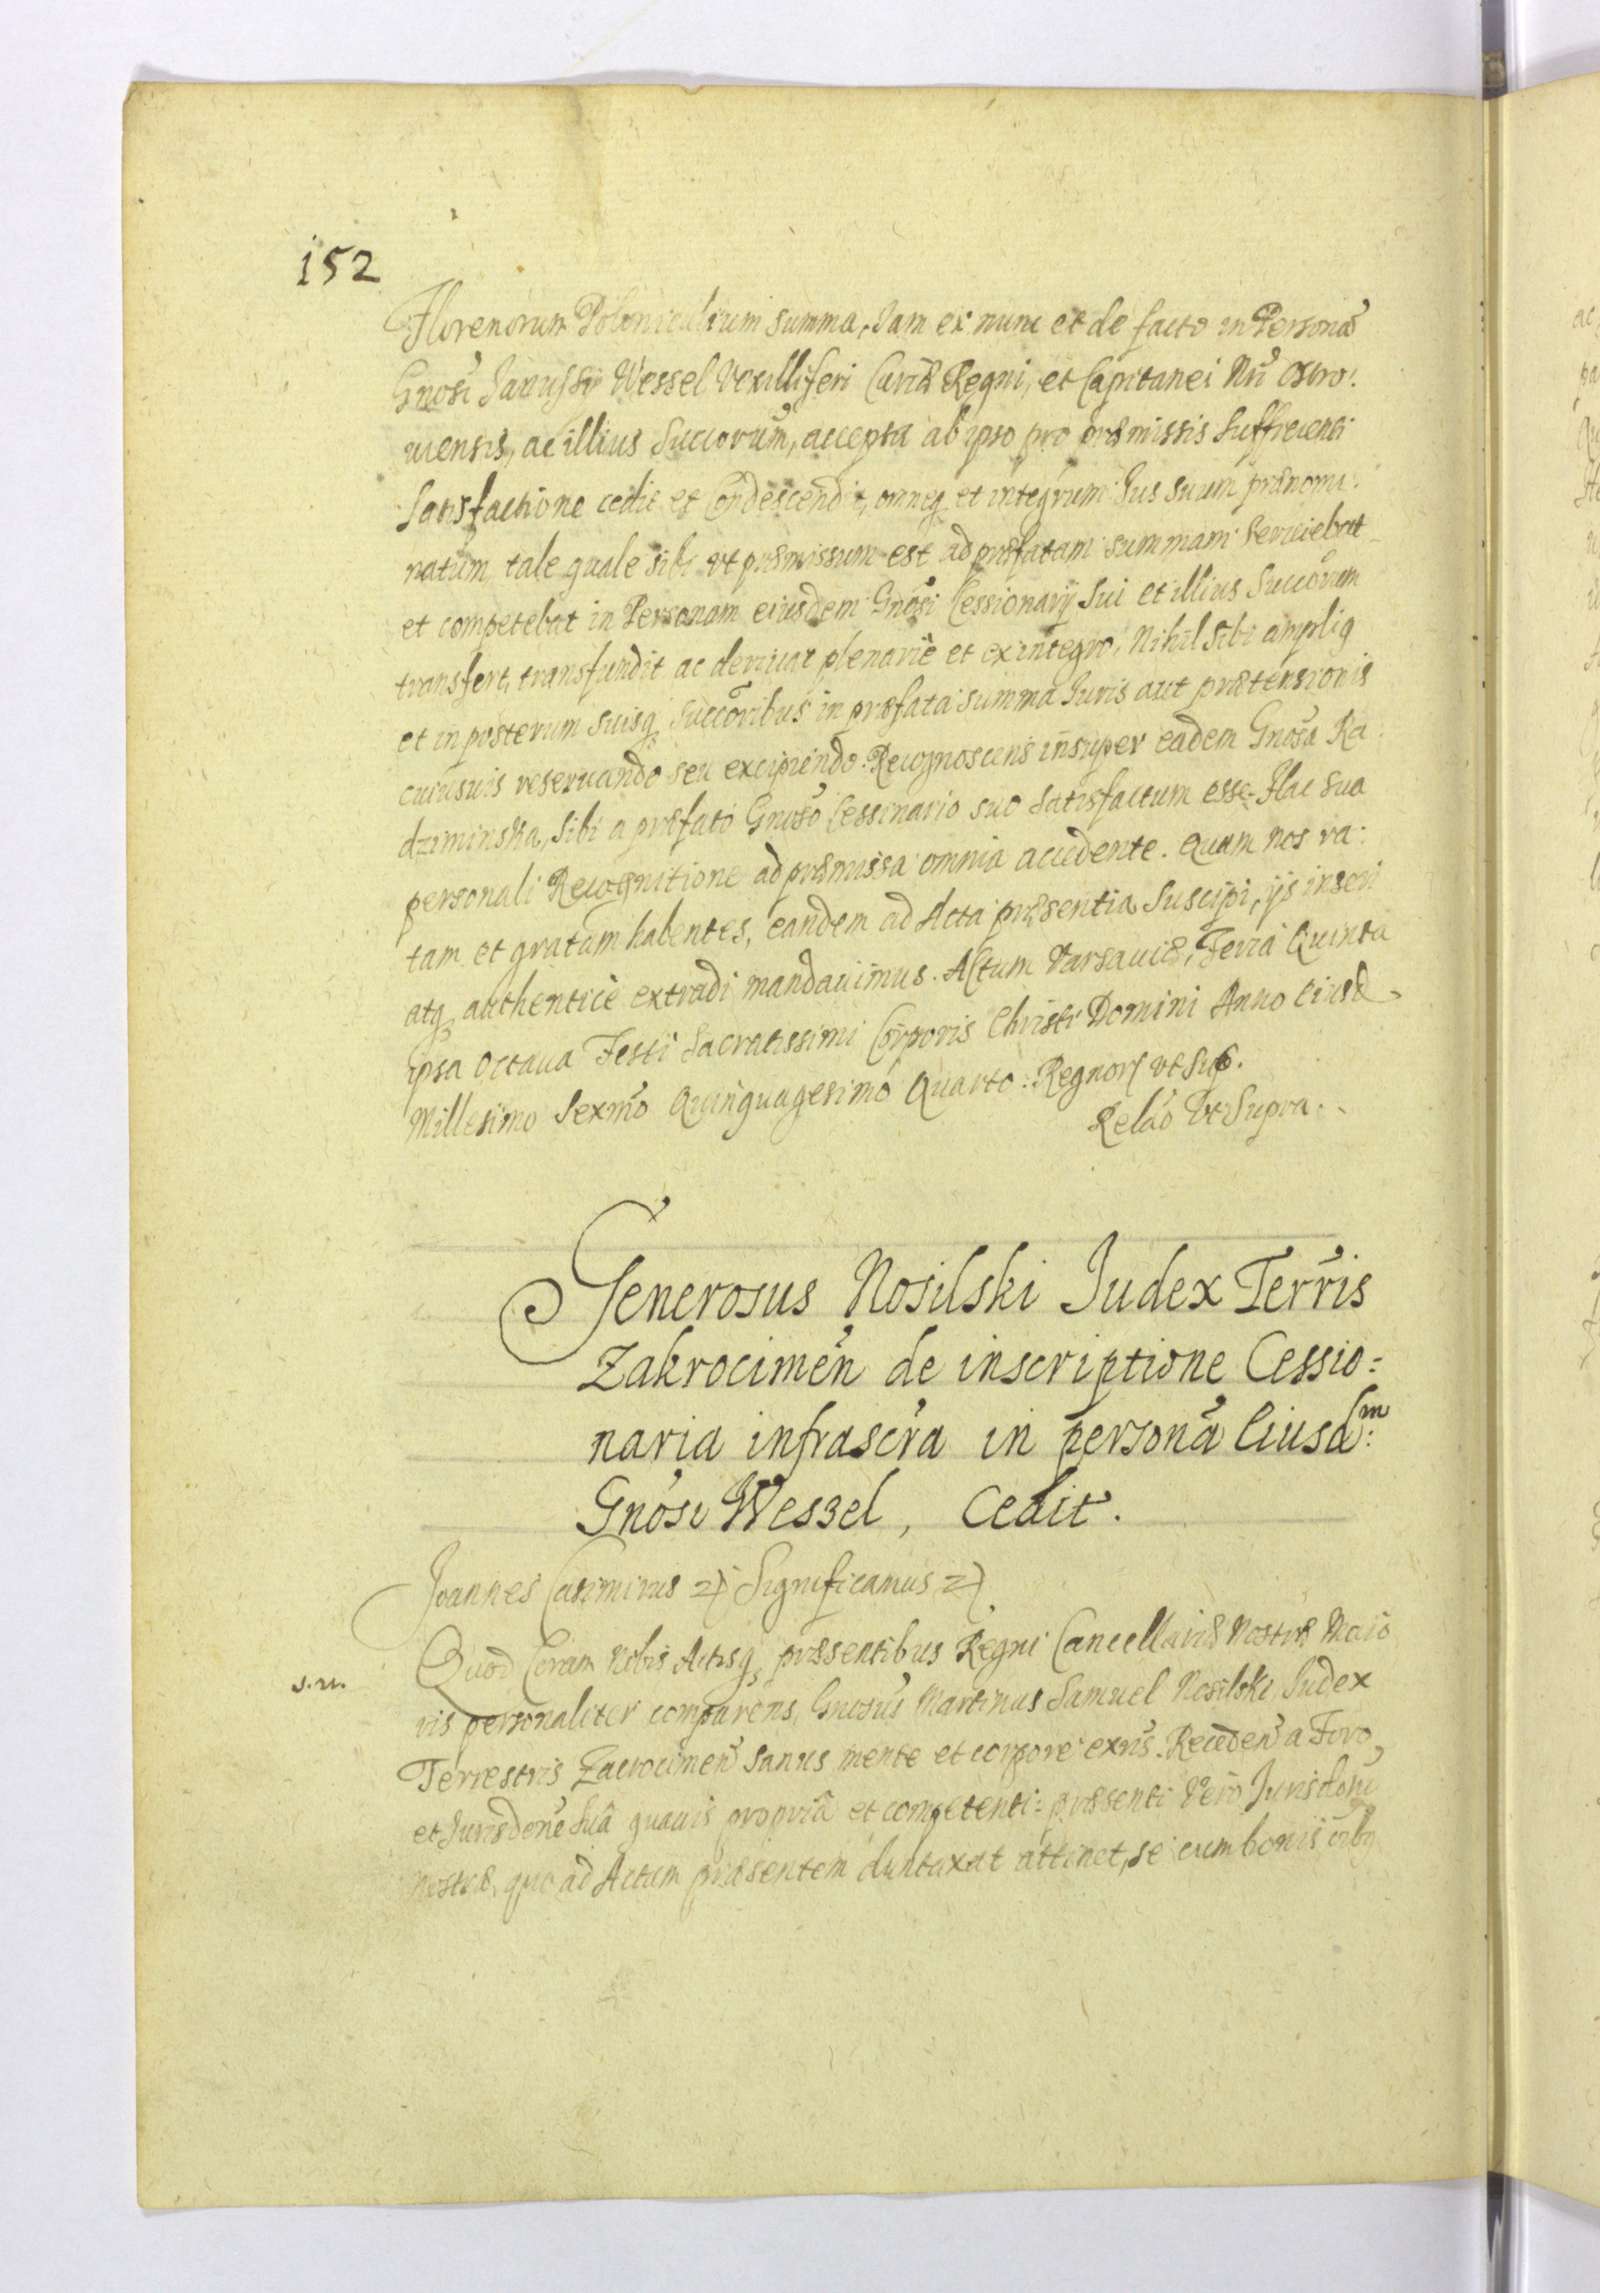 152
Florenorum Polonicalium summa, Iam ex nunc et de facto in Personã
Gnosi Janussÿ Wessel Vexilliferi Curiæ Regni, et Capitanei Nri Ostro:
uiensis, ac illius Succorum, accepta ab ipso pro præmissis Sufficienti
Satisfactione cedit et Condescendit, omneq et integrum Ius suum prænomi:
natum, tale quale sibi vt præmissum est ad præfatam summam seruiebat
et competebat in Personam eiusdem Gnosi Cessionarÿ Sui et illius Succorum
transfert, transfundit ac deriuat plenarie et ex integro, Nihil Sibi amplig
et in posterum suisq succoribus in præfata summa Iuris aut prætensionis
cuiusuis reseruando seu excipiendo. Recognoscens insuper eadem Gnosa Ra:
dziminska, Sibi a præfato Gnoso Cessinario suo Satisfactum esse. Hac Sua
personali Recognitione ad præmissa omnia accedente. Quam nos ra:
tam et gratam habentes, eandem ad Acta præsentia Suscipi, ÿs inseri
atq authentice extradi mandauimus. Actum Varsauiæ, Feria Quinta
ipsa Octaua Festi Sacratissimi Corporis Christi Domini Anno Eiusd
Millesimo Sexmo Quinquagesimo Quarto. Regnor vt Sup.
Relao Vt Supra.
Generosus Nosilski Iudex Terris
Zakrocimen de inscriptione Cessio=
naria infrascra in personã Eiusd^m:
Gnosi Wessel, Cedit.
Joannes Casimirus Significamus
s.n.
Quod Coram Nobis Actisq præsentibus Regni Cancellariæ Nostræ Maio
ris personaliter comparens, Gnosus Martinus Samuel Nosilski Iudex
Terrestris Zacrocimen sanus mente et corpore exns. Receden a Foro
et Iurisdone Suâ quauis propriâ et competenti: præsenti Vero Jurisdoni
Nostræ, quo ad Actum præsentem duntaxat attinet, se cum bonis